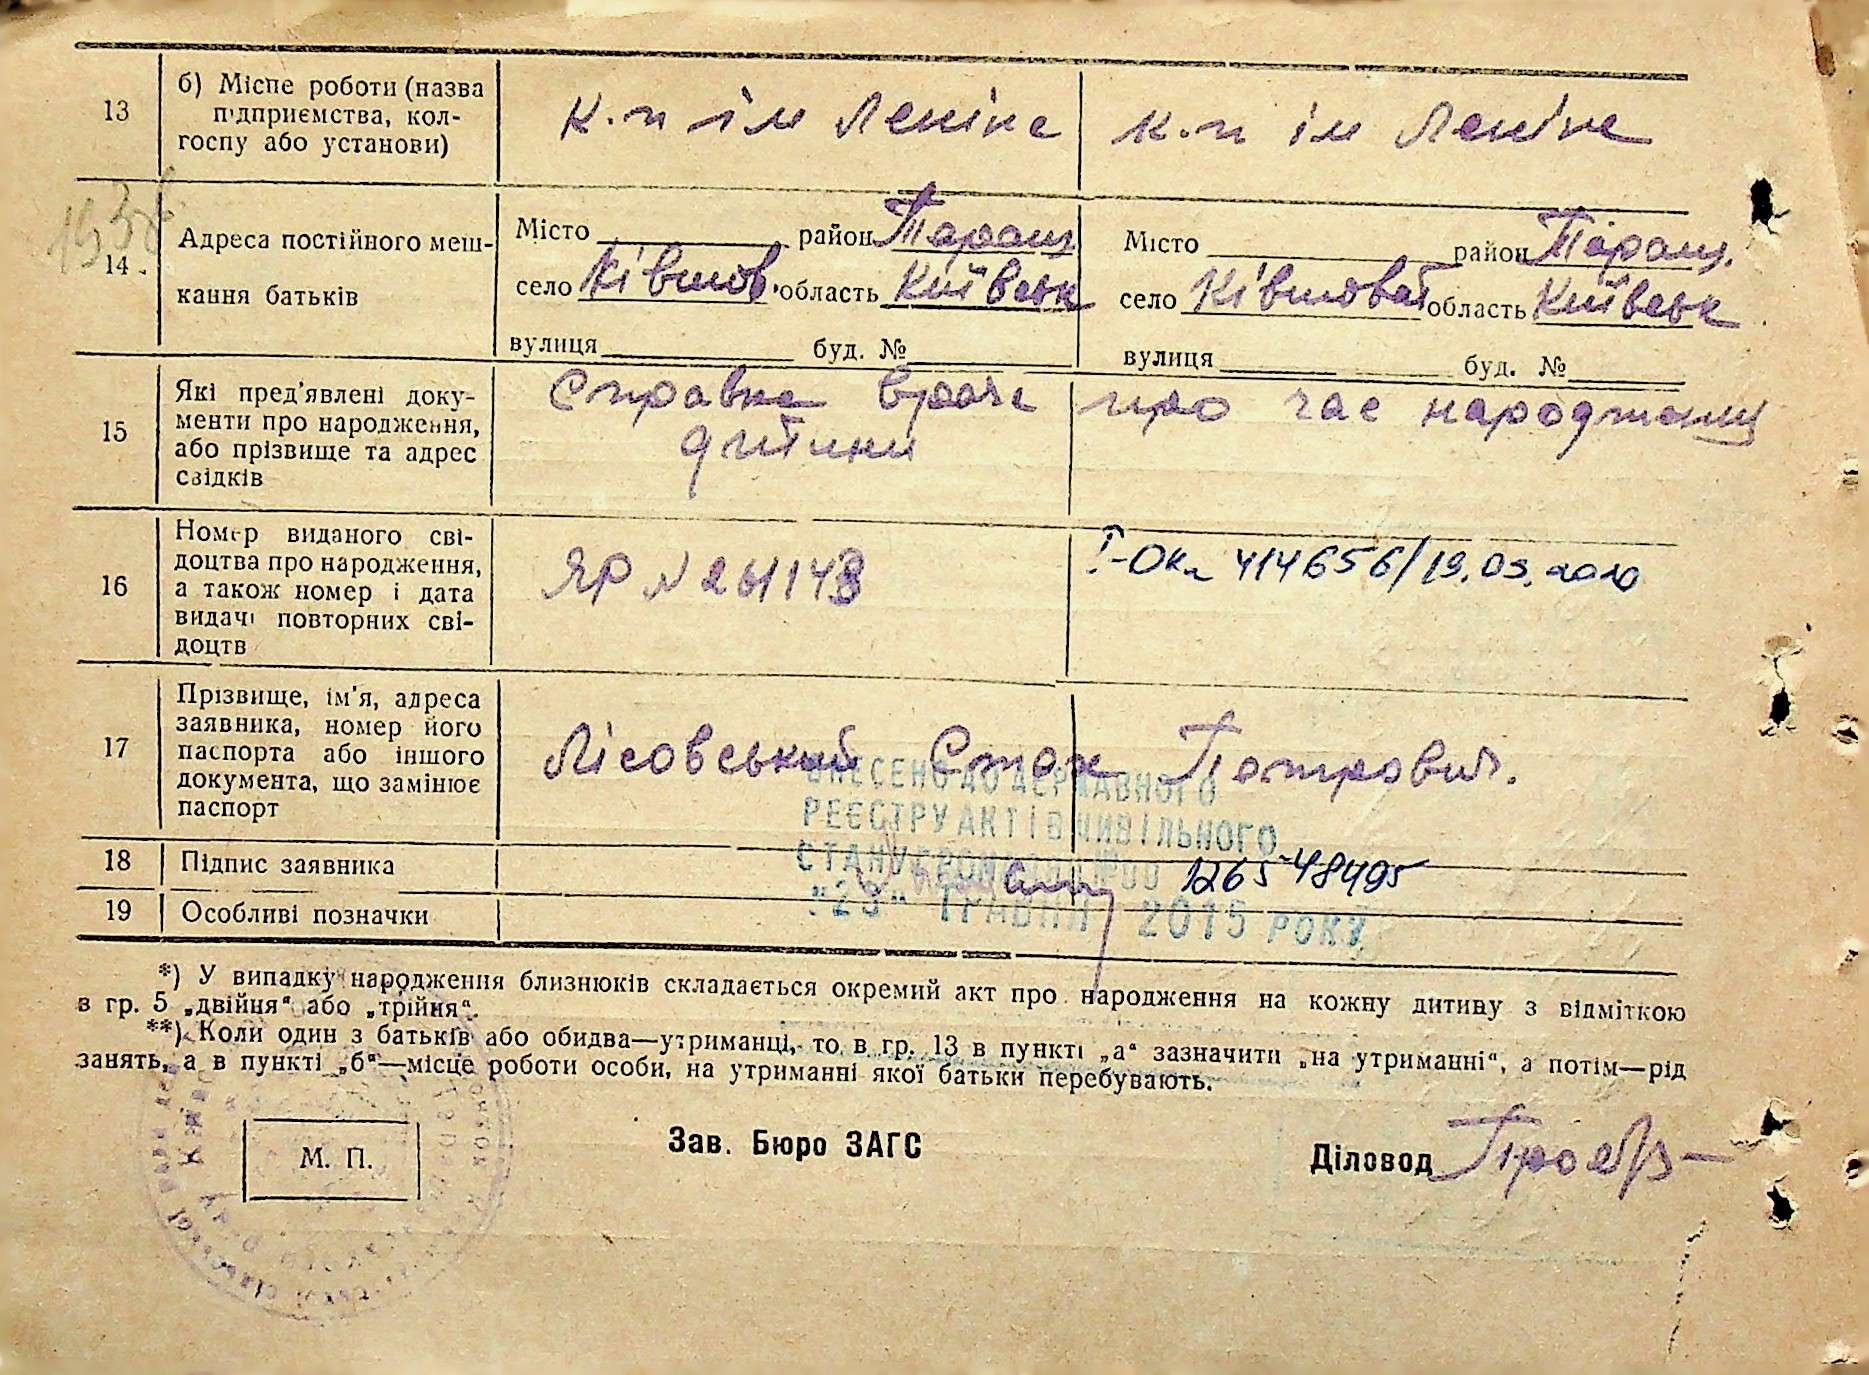 13
б) Місце роботи (назва
підприємства, кол-
госпу або установи)
к.п ім Леніна
к.п ім Леніна
14
Адреса постійного меш-
кання батьків
Місто район Таращ
село Ківшов. область Київськ
вулиця буд. №
Місто район Таращ.
село Ківшоват область Київськ
вулиця буд. №
15
Які пред'явлені доку-
менти про народження,
або прізвище та адрес
свідків
Справка врача про час народження
дитини
16
Номер виданого сві-
доцтва про народження,
а також номер і дата
видачі повторних сві-
доцтв
ЯР № 261143
I-ОК 414656/19.03.2010
17
Прізвище, ім'я, адреса
заявника, номер його
паспорта або іншого
документа, що замінює
паспорт
Лісовський Стах Петрович.
ВНЕСЕНО ДО ДЕРЖАВНОГО
РЕЄСТРУ АКТІВ ЦИВІЛЬНОГО
СТАНУ ГРОМАДЯН № 00126548495
"23" ТРАВНЯ 2015 РОКУ
18
Підпис заявника
19
Особливі позначки
*) У випадку народження близнюків складається окремий акт про народження на кожну дитину з відміткою
в гр. 5 „двійня“ або „трійня“.
**) Коли один з батьків або обидва—утриманці, то в гр. 13 в пункті „а“ зазначити „на утриманні“, а потім—рід
занять, а в пункті „б“—місце роботи особи, на утриманні якої батьки перебувають.
М. П.
Зав. Бюро ЗАГС
Діловод